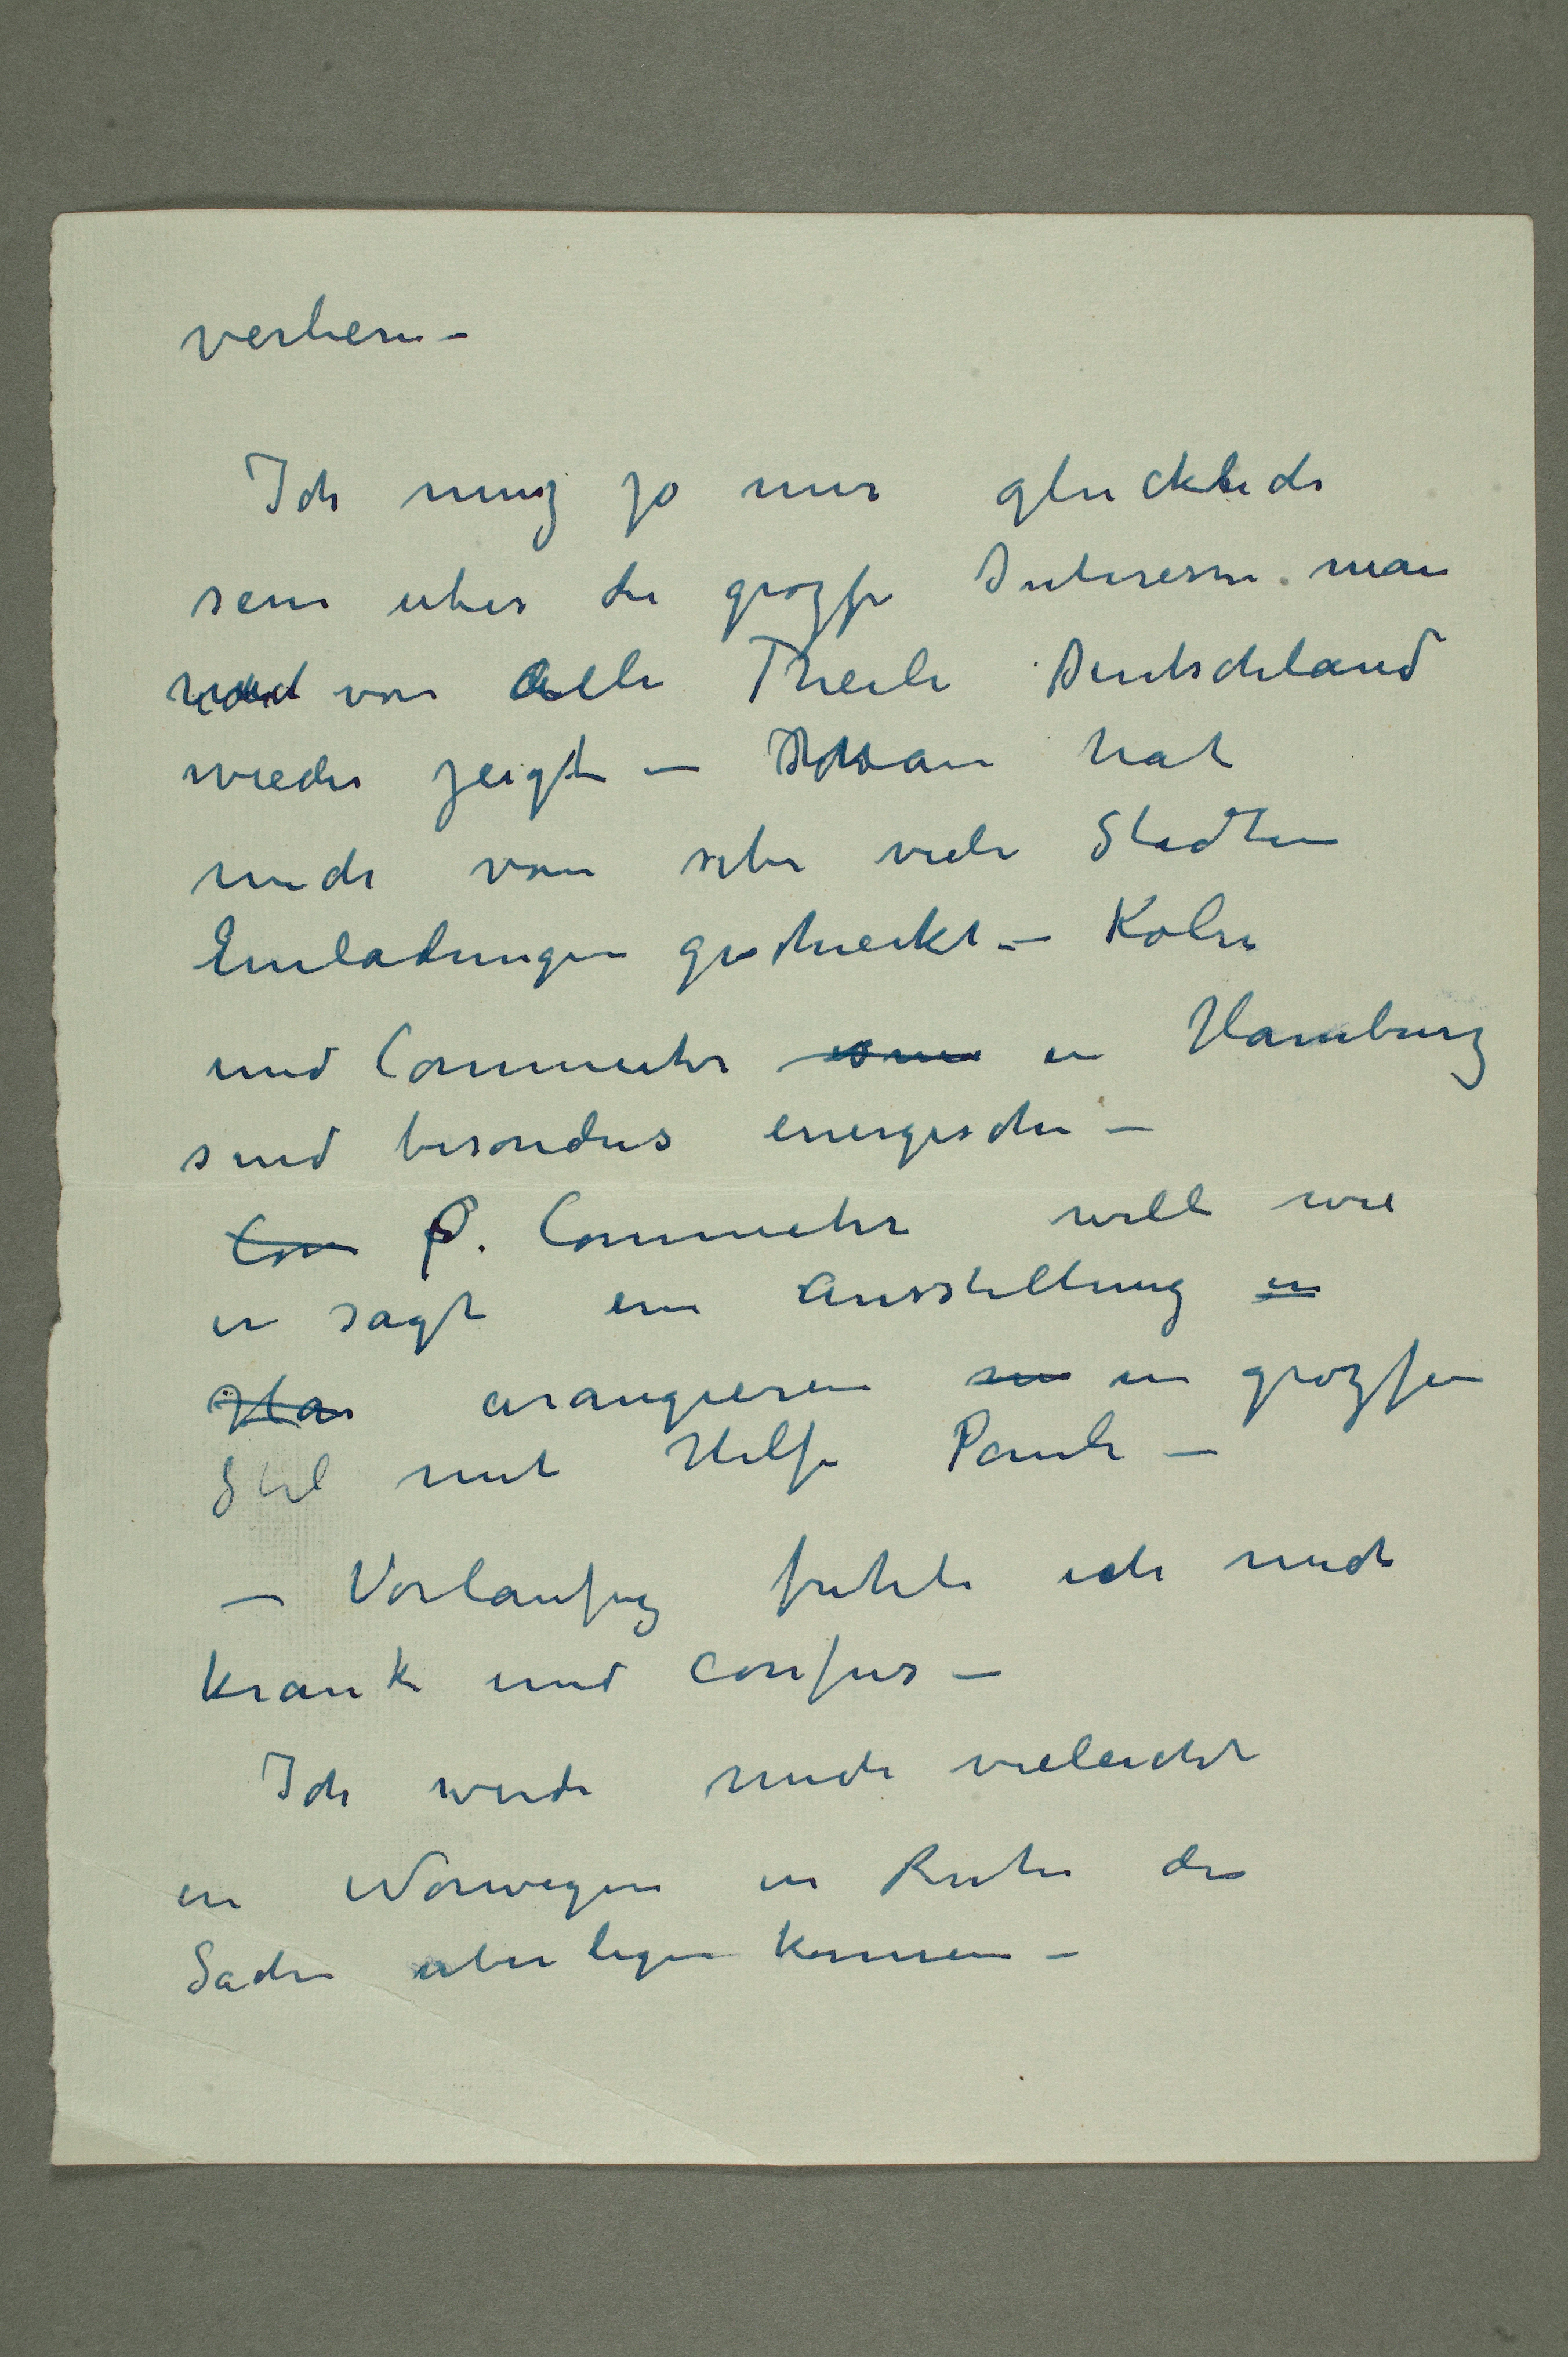 verliern –
Ich muß ja nur glücklich
sein uber die grozse Interesse man
von alle Theile Deutschland
wieder zeigt – Man hat
mich von sehr viele Stadten
Einladungen geschieckt – Køln
und Commeter in Hamburg
sind besonders energische –
Com P. Commeter will wie
er sagt ein Ausstellung in
Ham arangieren in grozsen
Stil mit Hilfe Pauli –
– Vorlaufig fuhle ich mich
krank und confus –
Ich werde mich vieleicht
in Norwegen in Ruhe die
Sache uberlegen konnen –